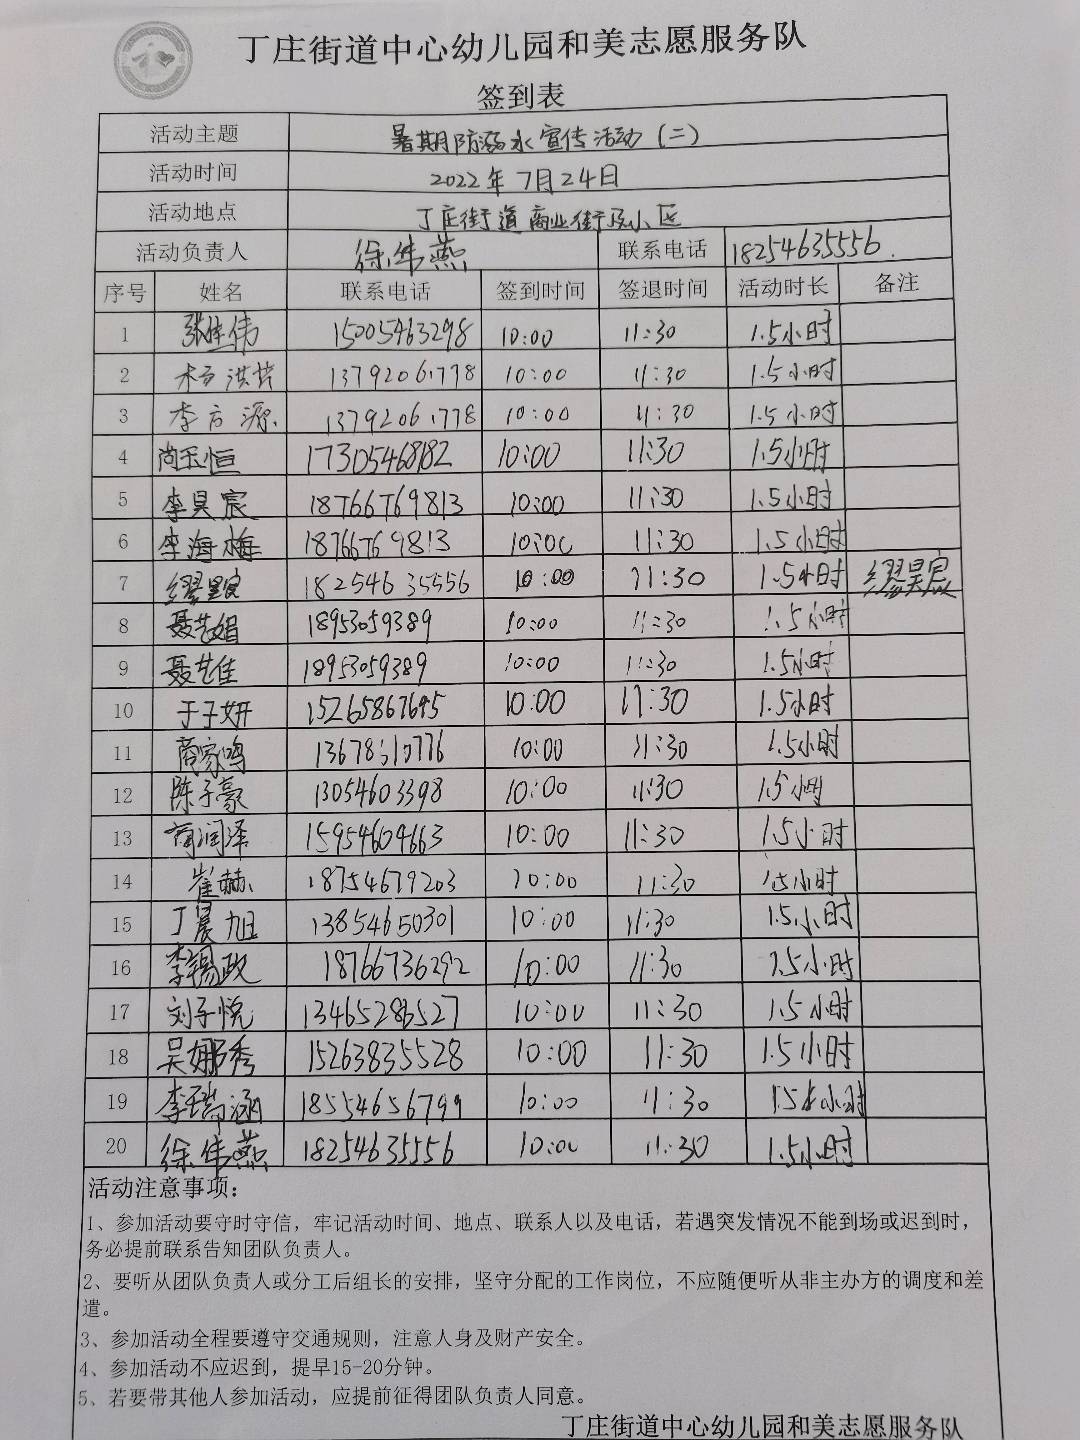 丁庄街道中心幼儿园和美志愿服务队
签到表
活动主题 暑期防溺水宣传活动(二)
活动时间 2022年7月24日
活动地点 丁庄街道商业街及小区
活动负责人 徐伟燕 联系电话 18254635556.
序号 姓名 联系电话 签到时间 签退时间 活动时长 备注
1 张佳伟 15005463298 10:00 11:30 1.5小时
2 杨洪苹 13792061778 10:00 11:30 1.5小时
3 李方源 13792061778 10:00 11:30 1.5小时
4 尚玉恒 17305468182 10:00 11:30 1.5小时
5 李昊宸 18766769813 10:00 11:30 1.5小时
6 李海梅 18766769813 10:00 11:30 1.5小时
7 18254635556 10:00 11:30 1.5小时 缪昊宸
8 聂艺娟 18953059389 10:00 11:30 1.5小时
9 聂艺佳 18953059389 10:00 11:30 1.5小时
10 于子妍 15265867695 10:00 11:30 1.5小时
11 商家鸣 13678610776 10:00 11:30 1.5小时
12 陈子豪 13054603398 10:00 11:30 1.5小时
13 润泽 15954604663 10:00 11:30 1.5小时
14 崔赫 18754679203 10:00 11:30 1.5小时
15 丁晨旭 13854650301 10:00 11:30 1.5小时
16 李锡政 18766736292 10:00 11:30 1.5小时
17 刘子悦 10:00 11:30 1.5小时
18 吴娜秀 15263835528 10:00 11:30 1.5小时
19 李瑞涵 18554656799 10:00 11:30 1.5小时
20 徐伟燕 18254635556 10:00 11:30 1.5小时
活动注意事项:
1、参加活动要守时守信，牢记活动时间、地点、联系人以及电话，若遇突发情况不能到场或迟到时，
务必提前联系告知团队负责人。
2、要听从团队负责人或分工后组长的安排，坚守分配的工作岗位，不应随便听从非主办方的调度和差
遣。
3、参加活动全程要遵守交通规则，注意人身及财产安全。
4、参加活动不应迟到，提早15-20分钟。
5、若要带其他人参加活动，应提前征得团队负责人同意。
丁庄街道中心幼儿园和美志愿服务队